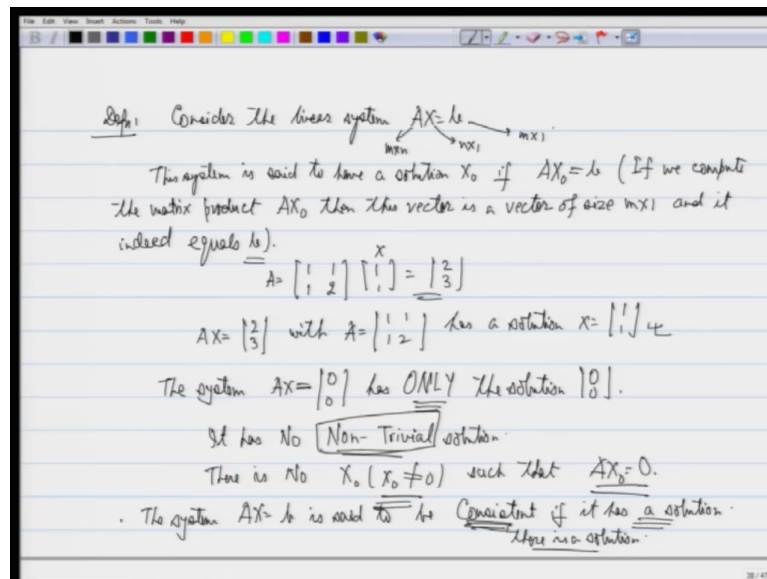 File Edit View Insert Actions Tools Help
B I
Defn: Consider the linear system AX = b
m×n n×1 m×1
This system is said to have a solution X₀ if AX₀ = b (If we compute
the matrix product AX₀ then this vector is a vector of size m×1 and it
indeed equals b).
A = [1 1; 1 2] X [1; 1] = [2; 3]
AX = [2; 3] with A = [1 1; 1 2] has a solution X = [1; 1]
The system AX = [0; 0] has ONLY the solution [0; 0].
It has No Non-Trivial solution.
There is No X₀ (X₀ ≠ 0) such that AX₀ = 0.
. The system AX = b is said to be Consistent if it has a solution.
there is a solution.
38/47